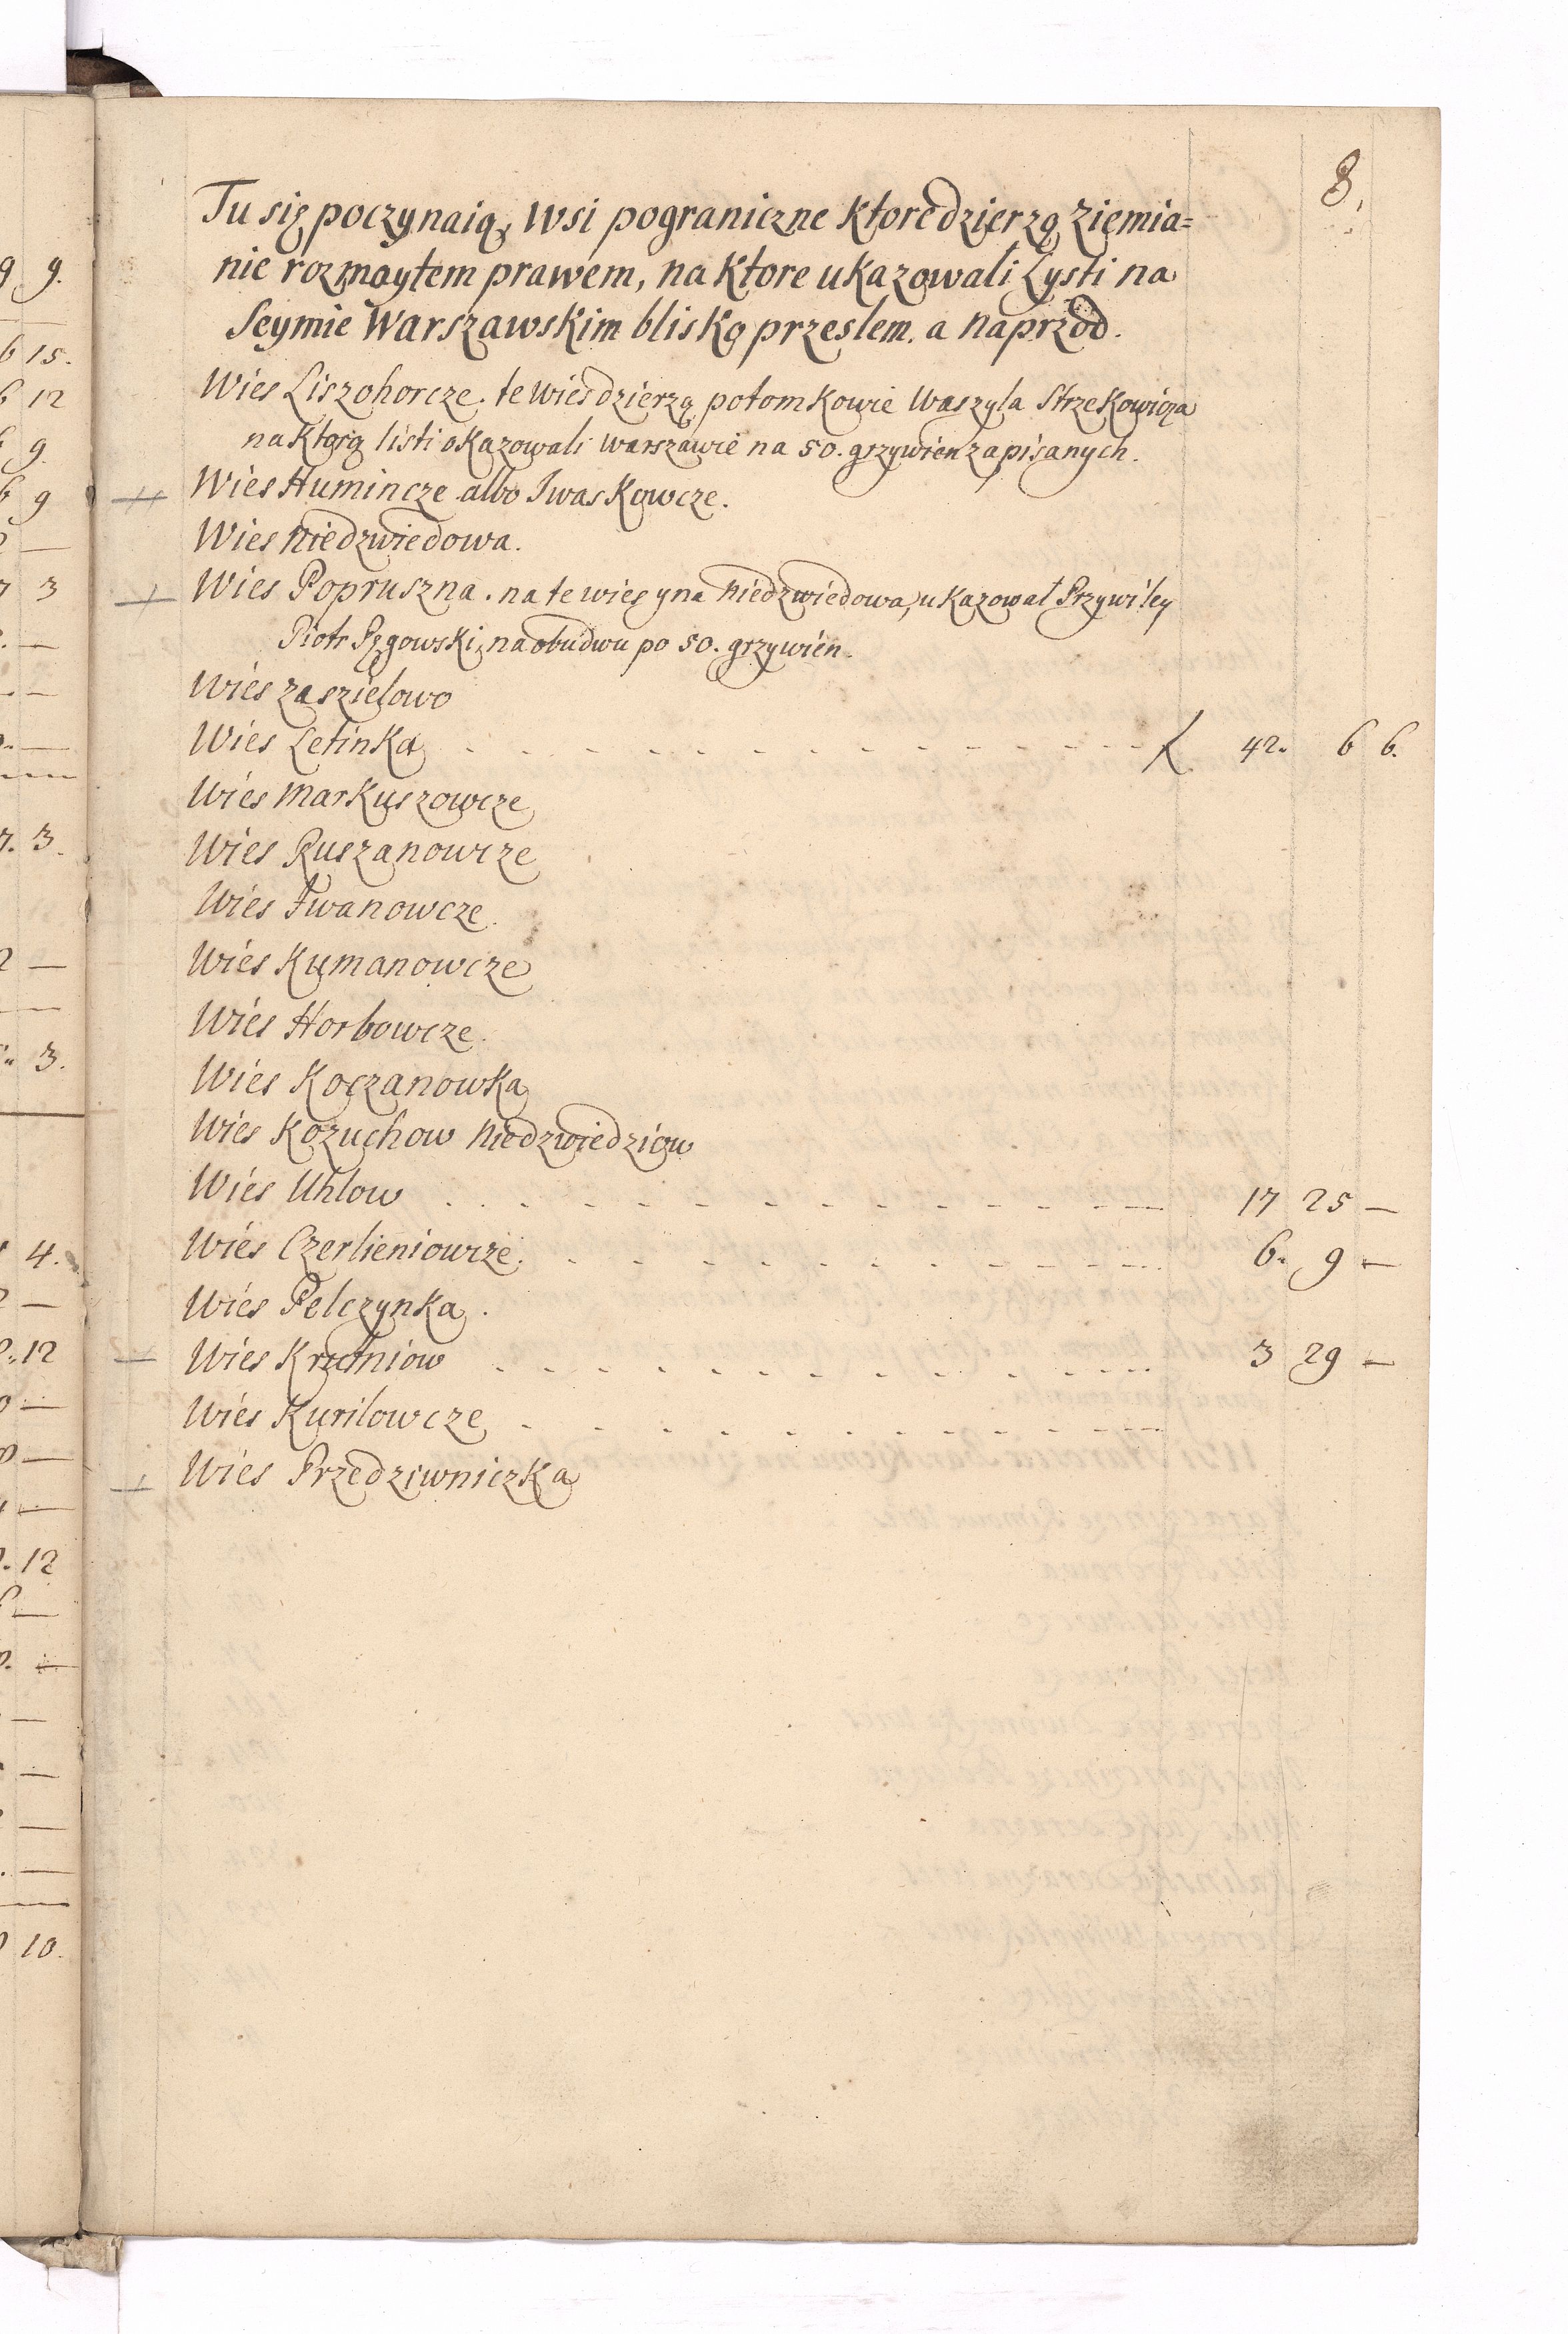 8.
Tu się poczynaią, Wsi pograniczne Ktore dzierzą Ziemia=
nie rozmaytem prawem, na Ktore ukazowali Lysti na
Seymie Warszawskim blisko przeslem. a naprzod.
Wies Liszohorcze. te Wies dzierzą potomkowie Waszyla Strzekowicza
na Ktorą listi okazowali warszawie na 50. grzywien zapisanych.
Wies Humincze albo Iwaskowcze.
Wies Niedzwiedowa.
Wies Popruszna. na te wies y na Niedzwiedowa, ukazował Przywiley
Piotr Pzgowski, na obudwu po 50. grzywien.
Wies Zaszielowo
Wies Letinka 42. 6 6.
Wies Markuszowcze
Wies Ruszanowcze
Wies Iwanowcze.
Wies Kumanowcze
Wies Horbowcze.
Wies Koczanowka
Wies Kozuchow Niedzwiedziow
Wies Uhlow 17 25 —
Wies Czerlieniowcze. 6. 9 —
Wies Pelczynka.
Wies Krzemiow 3 29 —
Wies Kurilowcze
Wies Przedziwniczka
9 9.
6 15.
6 12
6 9.
6 9
3
3.
3.
4.
12
12
10.